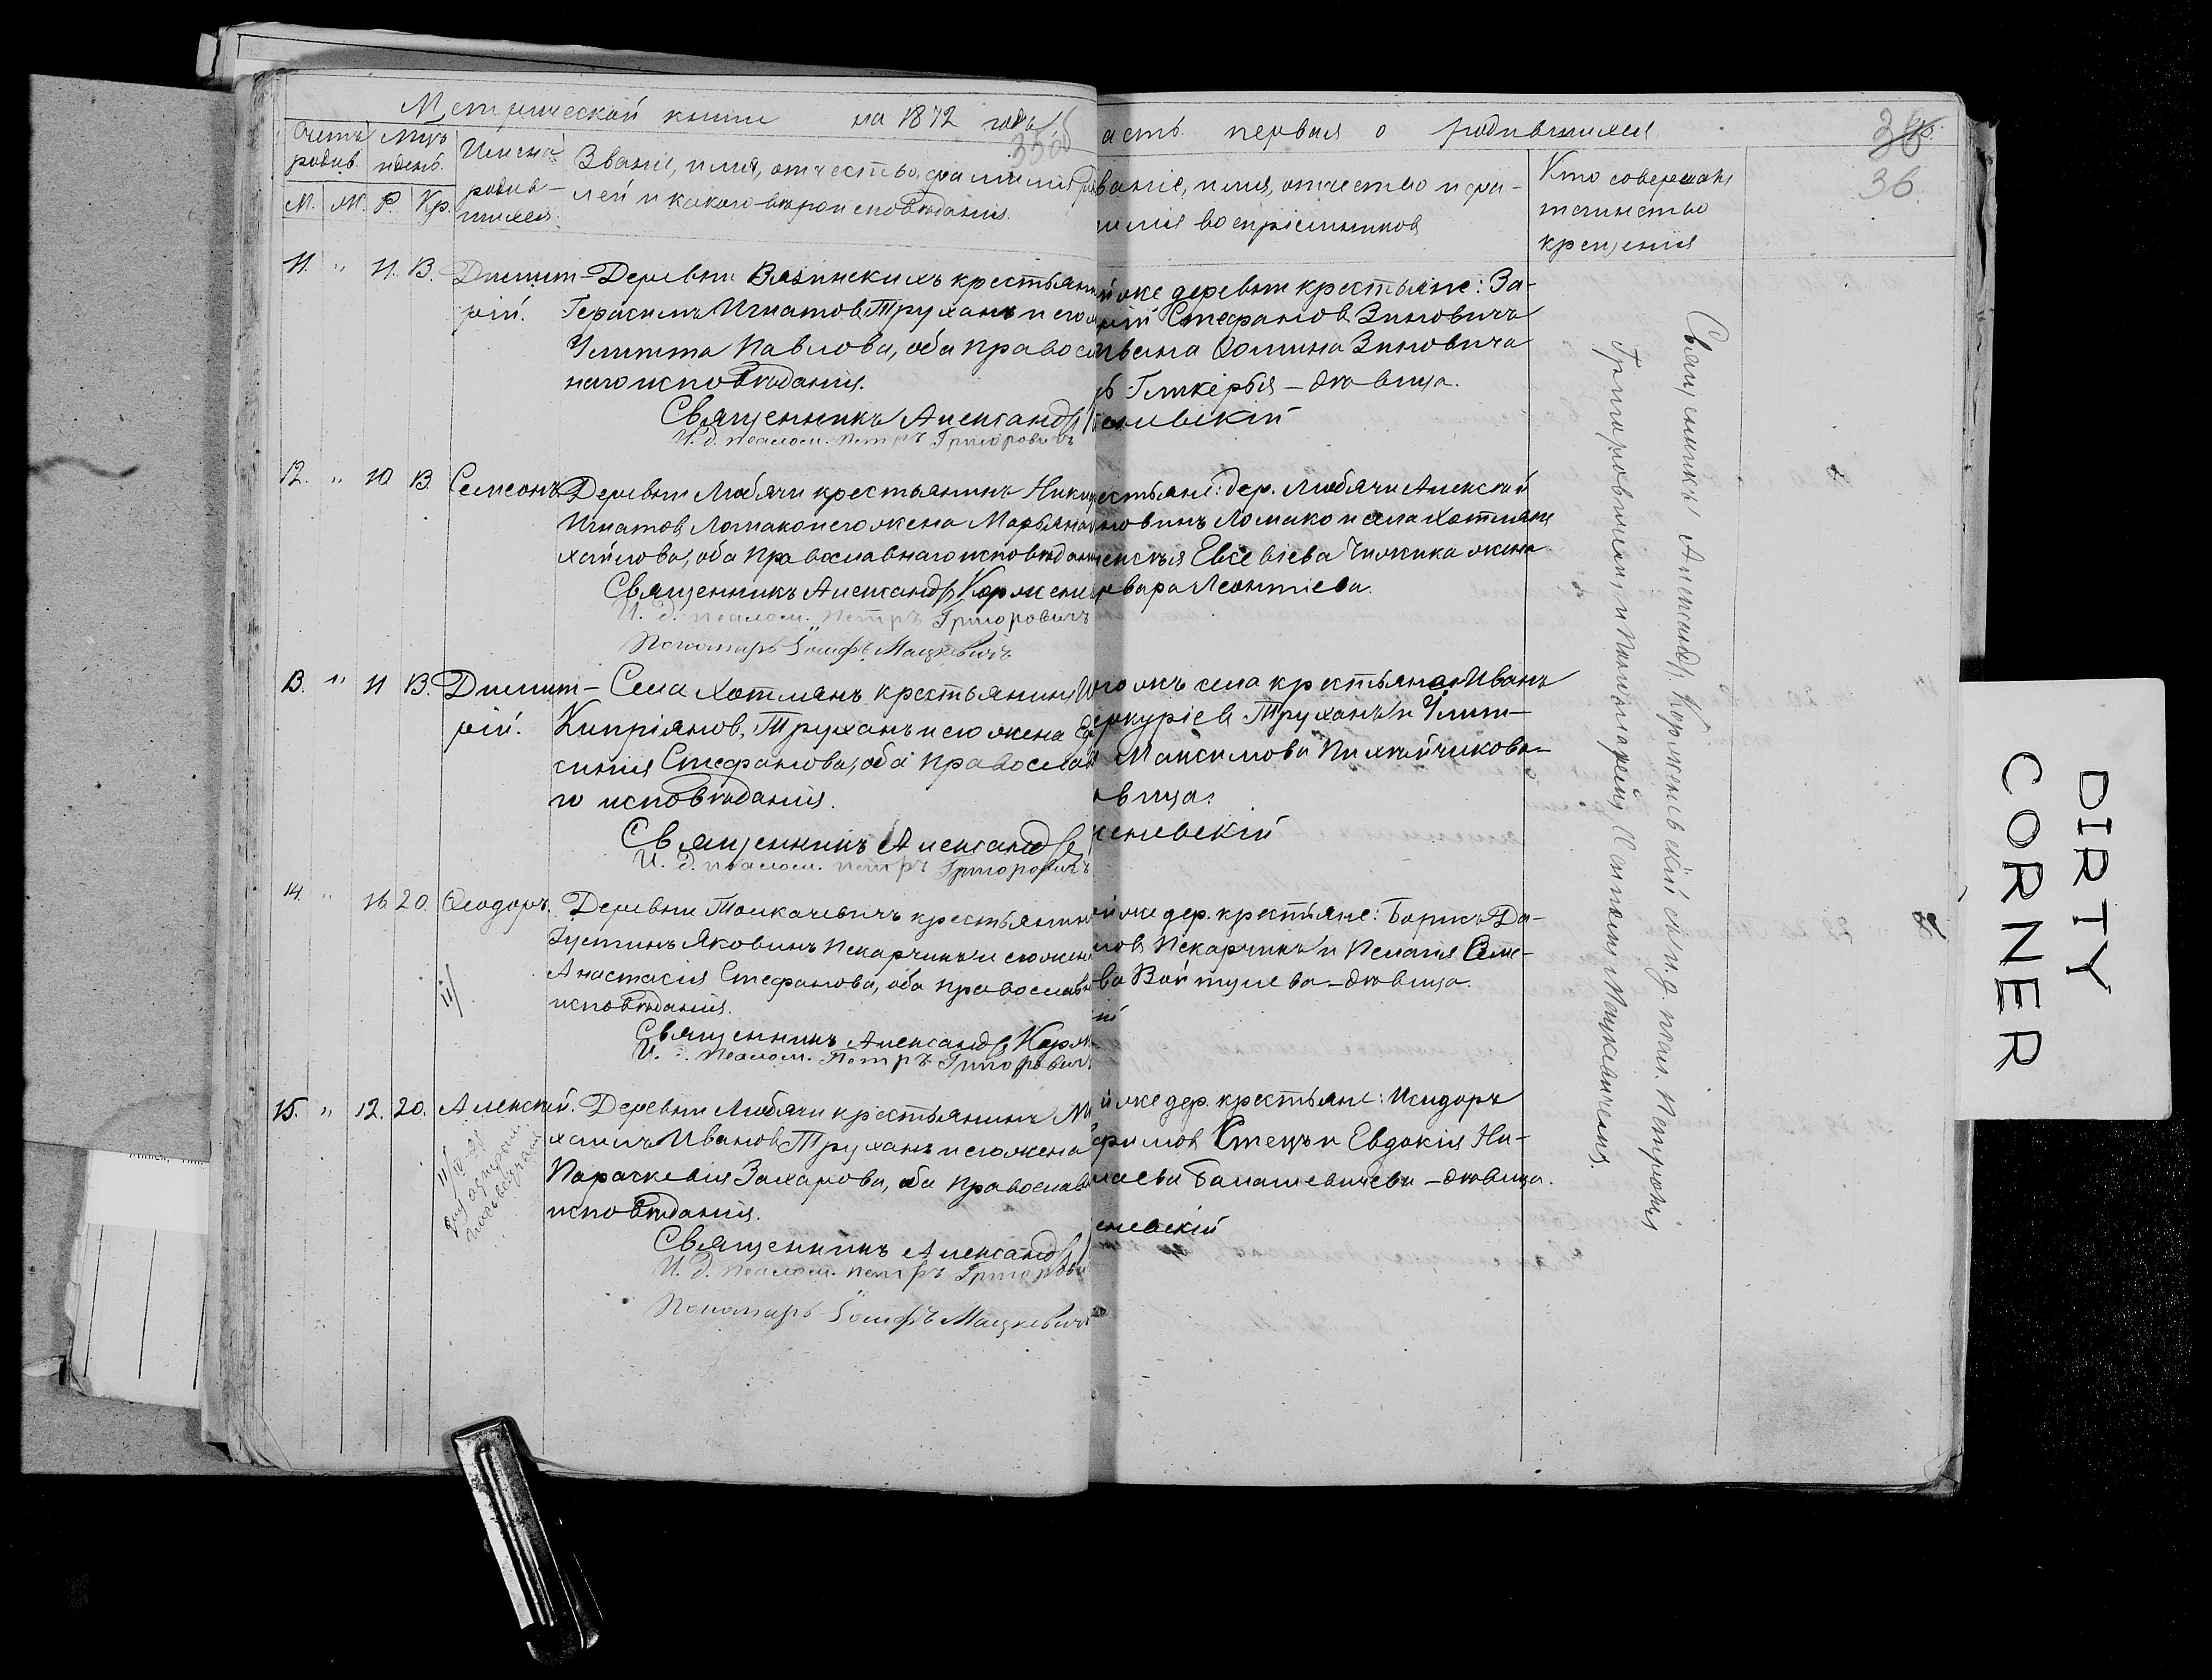 Метрической книги на 1872 годъ
асть первая о родившихся
36
Счетъ родив.
Мцъ и день.
М. Ж. Р. Кр.
Имена родив-
шихся.
Званіе, имя, отчество, фамилія
лей и какого вѣроисповѣданія.
званіе, имя, отчество и фа-
милія воспріемниковъ
Кто совершалъ
таинство
крещенія
11. " 11. 13. Димит-
рій.
Деревни Вязинскихъ крестьян
Герасимъ Игнатовъ Труханъ и его
Улита Павлова, оба правосл
наго исповѣданія.
Священникъ Александръ
И. д. псалом. Петръ Григоровичъ
й же деревни крестьяне: За-
рій Стефановъ Зиновичъ
Ѳомина Зиновича
ь Гликерья – дѣвица.
еневскій
12. " 10 13. Семеонъ
Деревни Любячи крестьянинъ Ники
Игнатовъ Ломако и его жена Марьяна
хайлова, оба Православнаго исповѣдан
Священникъ Александръ Коржене
И. д. псалом. Петръ Григоровичъ
Пономарь Іосифъ Мацкевичъ
естьяне: дер. Любячи Алексѣй
новинъ Ломако и села Хотлянъ
Евсевіева Чижика жена
рвара Леонтіева.
13. " 11 13. Димит-
рій.
Села Хотлянъ крестьянинъ
Кипріяновъ Труханъ и его жена
синія Стефанова, оба Православ
го исповѣданія.
Священникъ Александръ
И. д. псалом. Петръ Григоровичъ
го жъ села крестьяне: Иванъ
еркуріевъ Труханъ и Улит-
Максимова Пихтойчикова-
ѣвица.
женевскій
14. " 16 20. Ѳеодоръ.
Деревни Толкачевичъ крестьянин
Іустинъ Яковинъ Пекарчикъ и его жена
Анастасія Стефанова, оба православн
исповѣданія.
Священникъ Александръ Корж
И. д. псалом. Петръ Григорович
й же дер. крестьяне: Борисъ Да-
ловъ Пекарчикъ и Пелагія Семе-
ва Войтулева – дѣвица.
ій
15. " 12. 20. Алексѣй.
Деревни Любячи крестьянинъ Ми
хаилъ Ивановъ Труханъ и его жена
Параскевія Захарова, оба православн
исповѣданія.
Священникъ Александръ
И. д. псалом. Петръ Григорови
Пономарь Іосифъ Мацкевичъ
й же дер. крестьяне: Исидоръ
фимовъ Стецъ и Евдокія Ни-
лаева Баглашевичева – дѣвица.
еневскій
Священникъ Александръ Корженевскій съ и. д. псал. Петромъ
Григоровичемъ и Пономаремъ Іосифомъ Мацкевичемъ.
DIRTY
CORNER